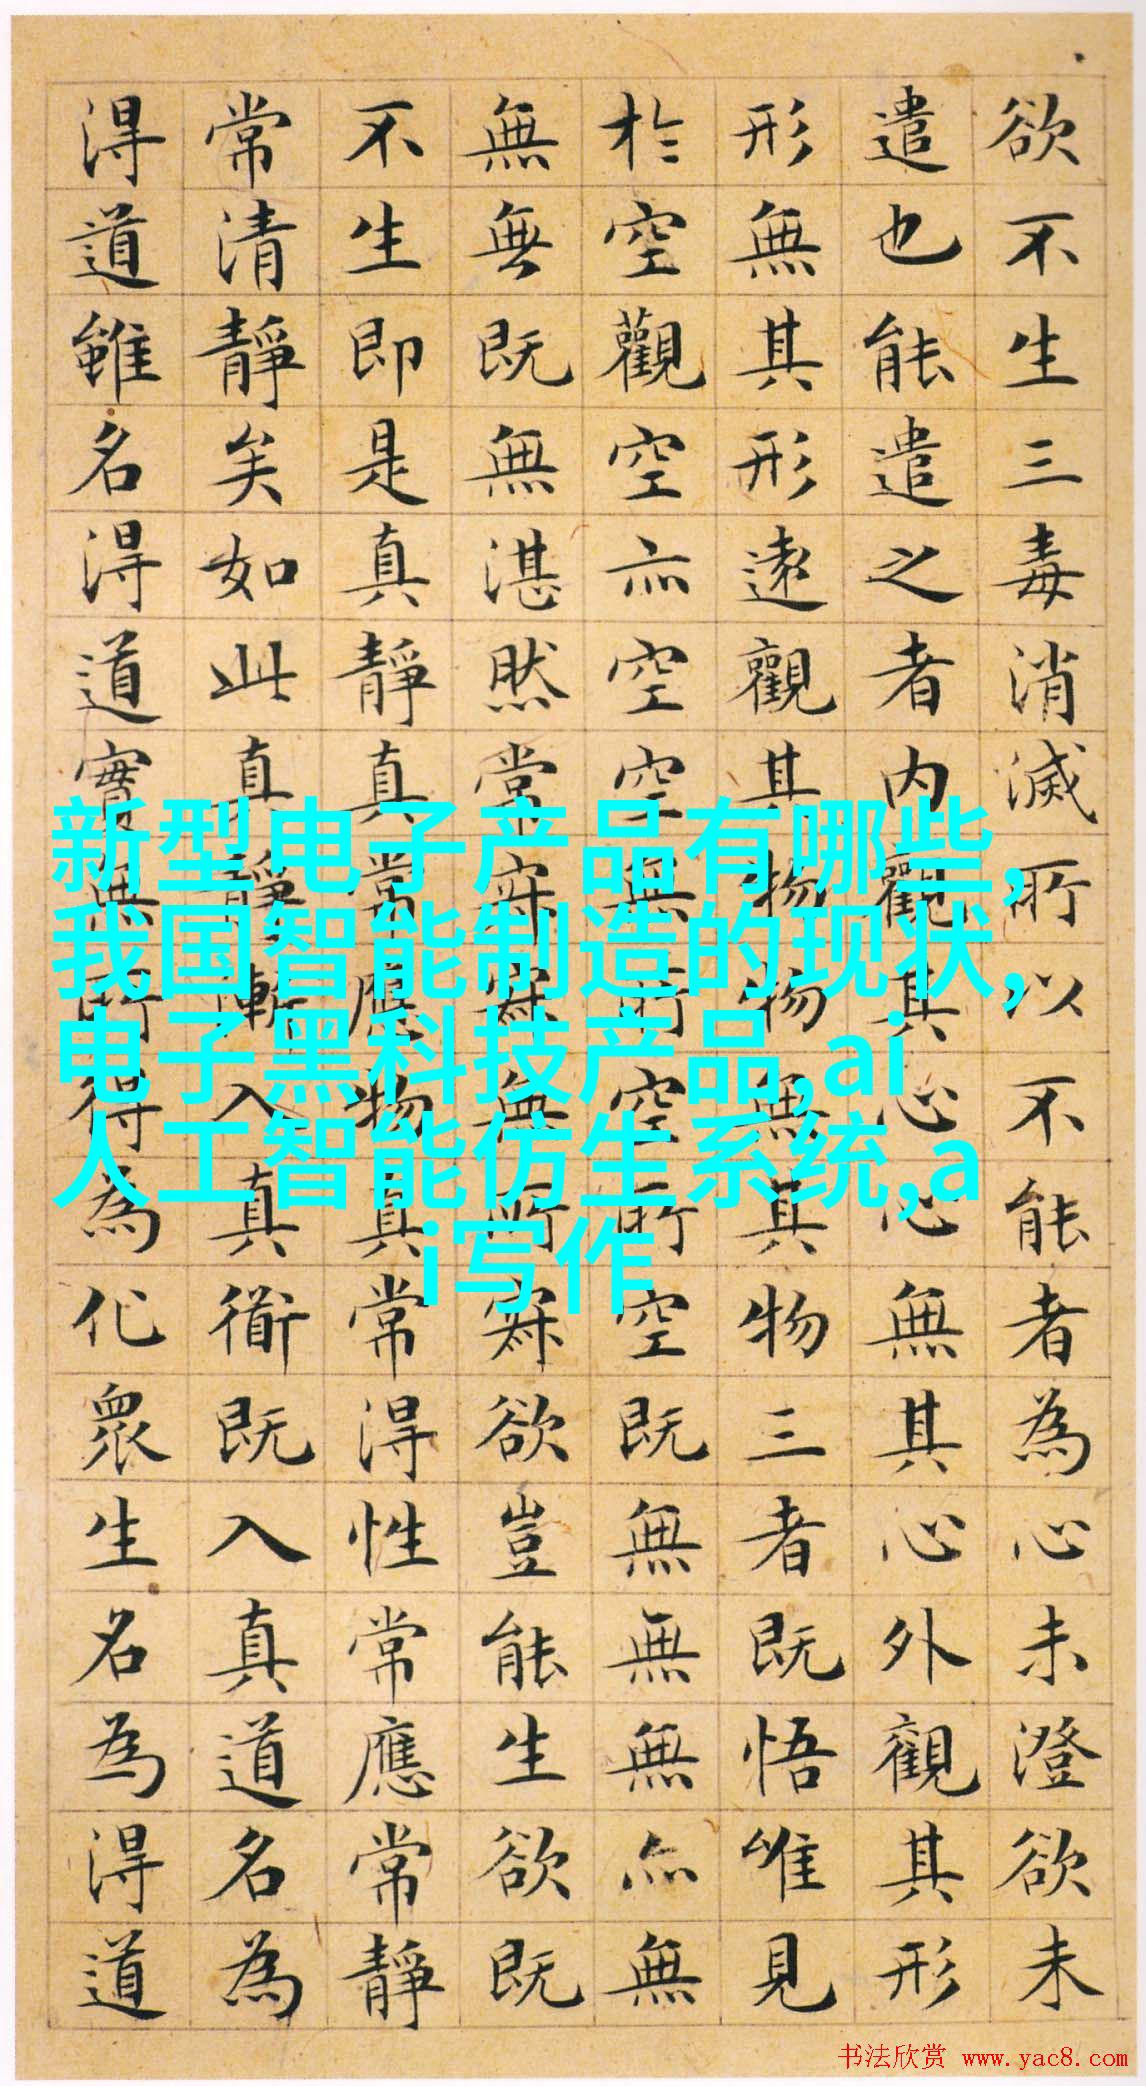 欲不生三毒消滅所以不能者為心未澄欲未
遣也能遣之者内觀其心心無其心外觀其形
形無其形遠觀其物物無其物三者既悟唯見
於空觀空亦空空無所空所空既無無無亦無
無無既無湛然常寂寂無所寂欲豈能生欲既
不生即是真靜真常應物真常得性常應常靜
常清靜矣如此真靜漸入真衜既入真道名為
得道雖名得道實無所得為化眾生名為得道
新型电子产品有哪些,
我国智能制造的现状,
电子黑科技产品,ai
人工智能仿生系统,a
i写作
书法欣赏 www.yac8.com